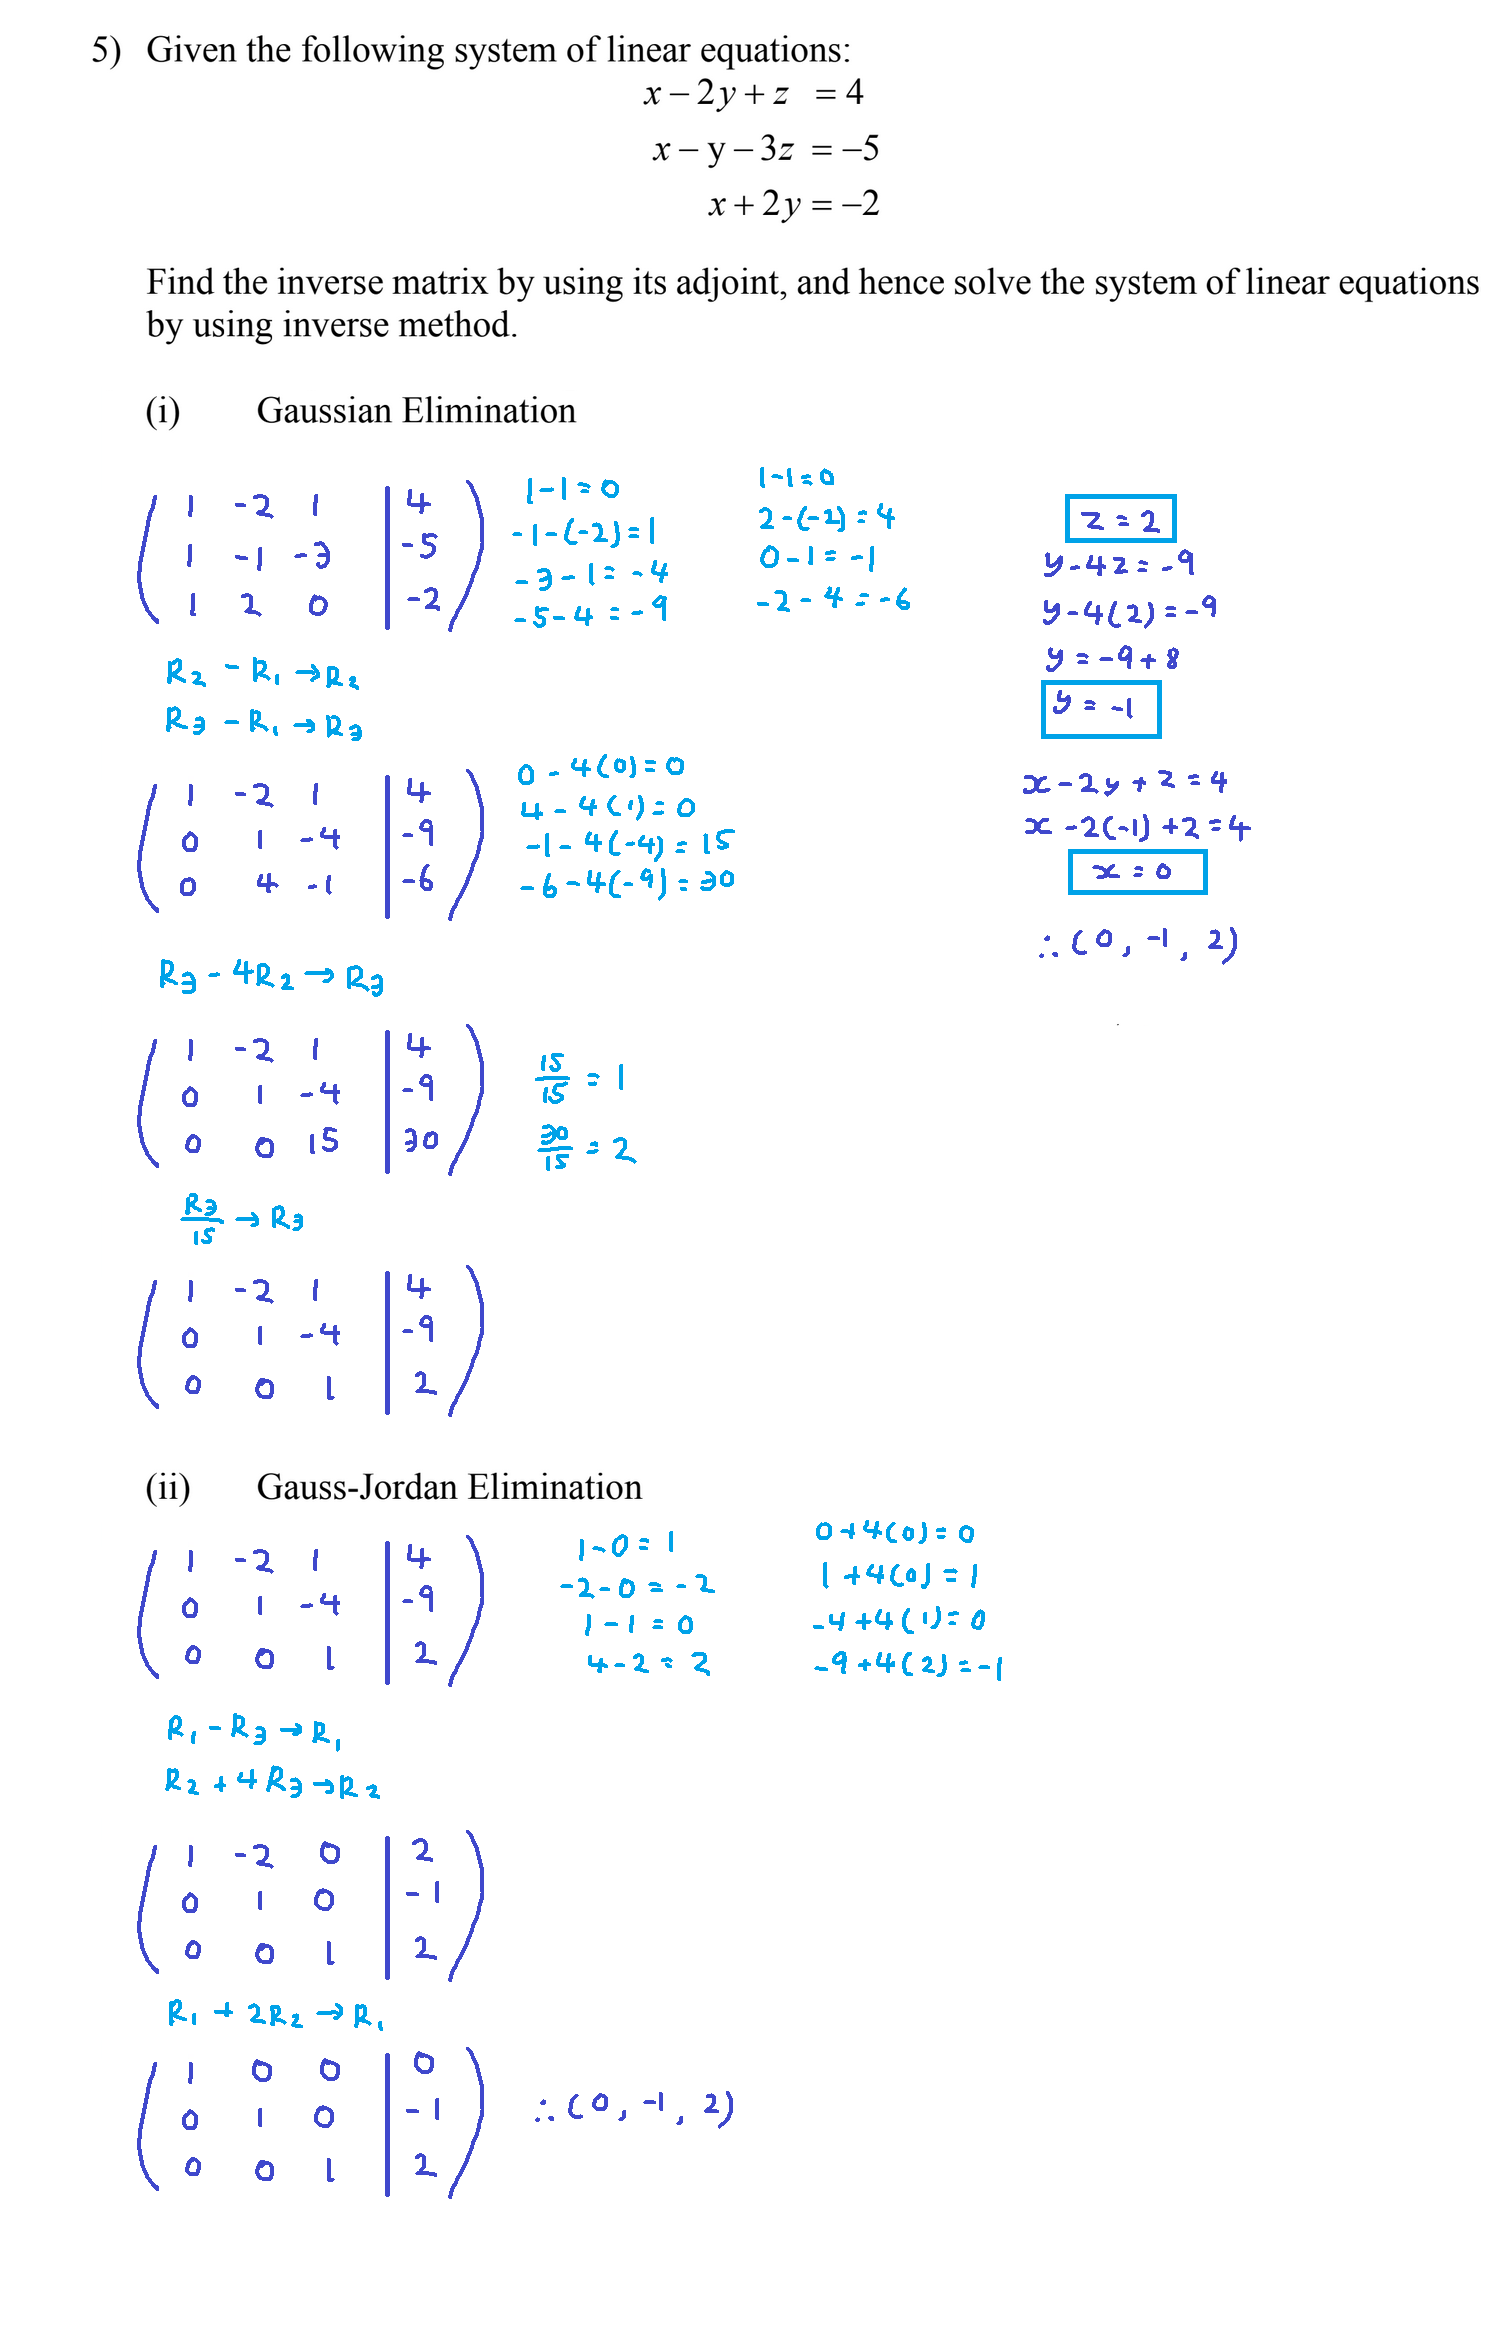 5) Given the following system of linear equations:
x − 2y + z = 4
x − y − 3z = −5
x + 2y = −2
Find the inverse matrix by using its adjoint, and hence solve the system of linear equations
by using inverse method.
(i) Gaussian Elimination
1 -2 1 | 4
1 -1 -3 | -5
1 2 0 | -2
1-1=0
-1-(-2)=1
-3-1=-4
-5-4=-9
1-1=0
2-(-2)=4
0-1=-1
-2-4=-6
R2 - R1 → R2
R3 - R1 → R3
1 -2 1 | 4
0 1 -4 | -9
0 4 -1 | -6
0-4(0)=0
4-4(1)=0
-1-4(-4)=15
-6-4(-9)=30
R3 - 4R2 → R3
1 -2 1 | 4
0 1 -4 | -9
0 0 15 | 30
15/15 = 1
30/15 = 2
R3/15 → R3
1 -2 1 | 4
0 1 -4 | -9
0 0 1 | 2
z = 2
y-4z=-9
y-4(2)=-9
y=-9+8
y=-1
x-2y+z=4
x-2(-1)+2=4
x=0
∴(0,-1,2)
(ii) Gauss-Jordan Elimination
1 -2 1 | 4
0 1 -4 | -9
0 0 1 | 2
1-0=1
-2-0=-2
1-1=0
4-2=2
0+4(0)=0
1+4(0)=1
-4+4(1)=0
-9+4(2)=-1
R1-R3→R1
R2+4R3→R2
1 -2 0 | 2
0 1 0 | -1
0 0 1 | 2
R1+2R2→R1
1 0 0 | 0
0 1 0 | -1
0 0 1 | 2
∴(0,-1,2)